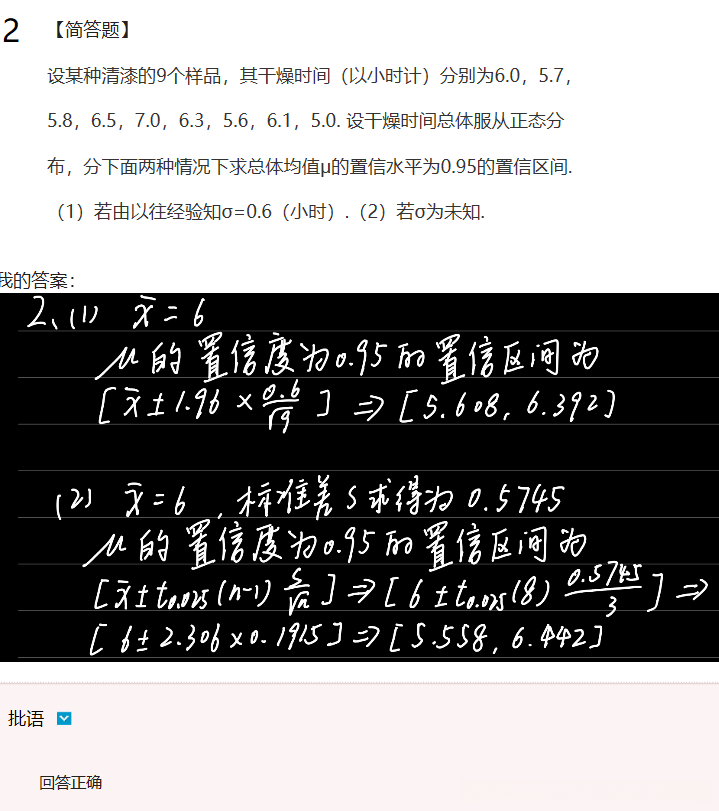 2 【简答题】
设某种清漆的9个样品，其干燥时间（以小时计）分别为6.0，5.7，
5.8，6.5，7.0，6.3，5.6，6.1，5.0. 设干燥时间总体服从正态分
布，分下面两种情况下求总体均值μ的置信水平为0.95的置信区间.
（1）若由以往经验知σ=0.6（小时）.（2）若σ为未知.
我的答案：
2、(1) x̄ = 6
μ 的 置信度为0.95 的 置信区间为
[x̄ ± 1.96 × 0.6/√9 ] ⇒ [5.608, 6.392]
(2) x̄ = 6 , 标准差 S 求得为 0.5745
μ 的 置信度为0.95 的 置信区间为
[x̄ ± t0.025 (n-1) S/√n ] ⇒ [ 6 ± t0.025 (8) 0.5745/3 ] ⇒
[ 6 ± 2.306 × 0.1915 ] ⇒ [5.558, 6.442]
批语
回答正确